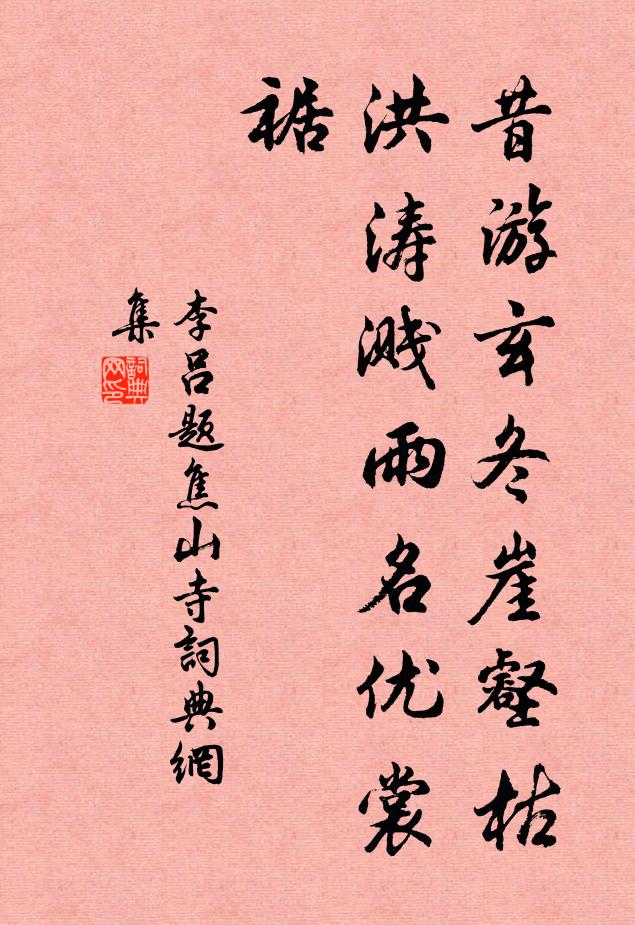 昔游玄冬崖壑枯
洪涛溅雨名优裳
裾
李吕题焦山寺詞典網
集
詞典网印